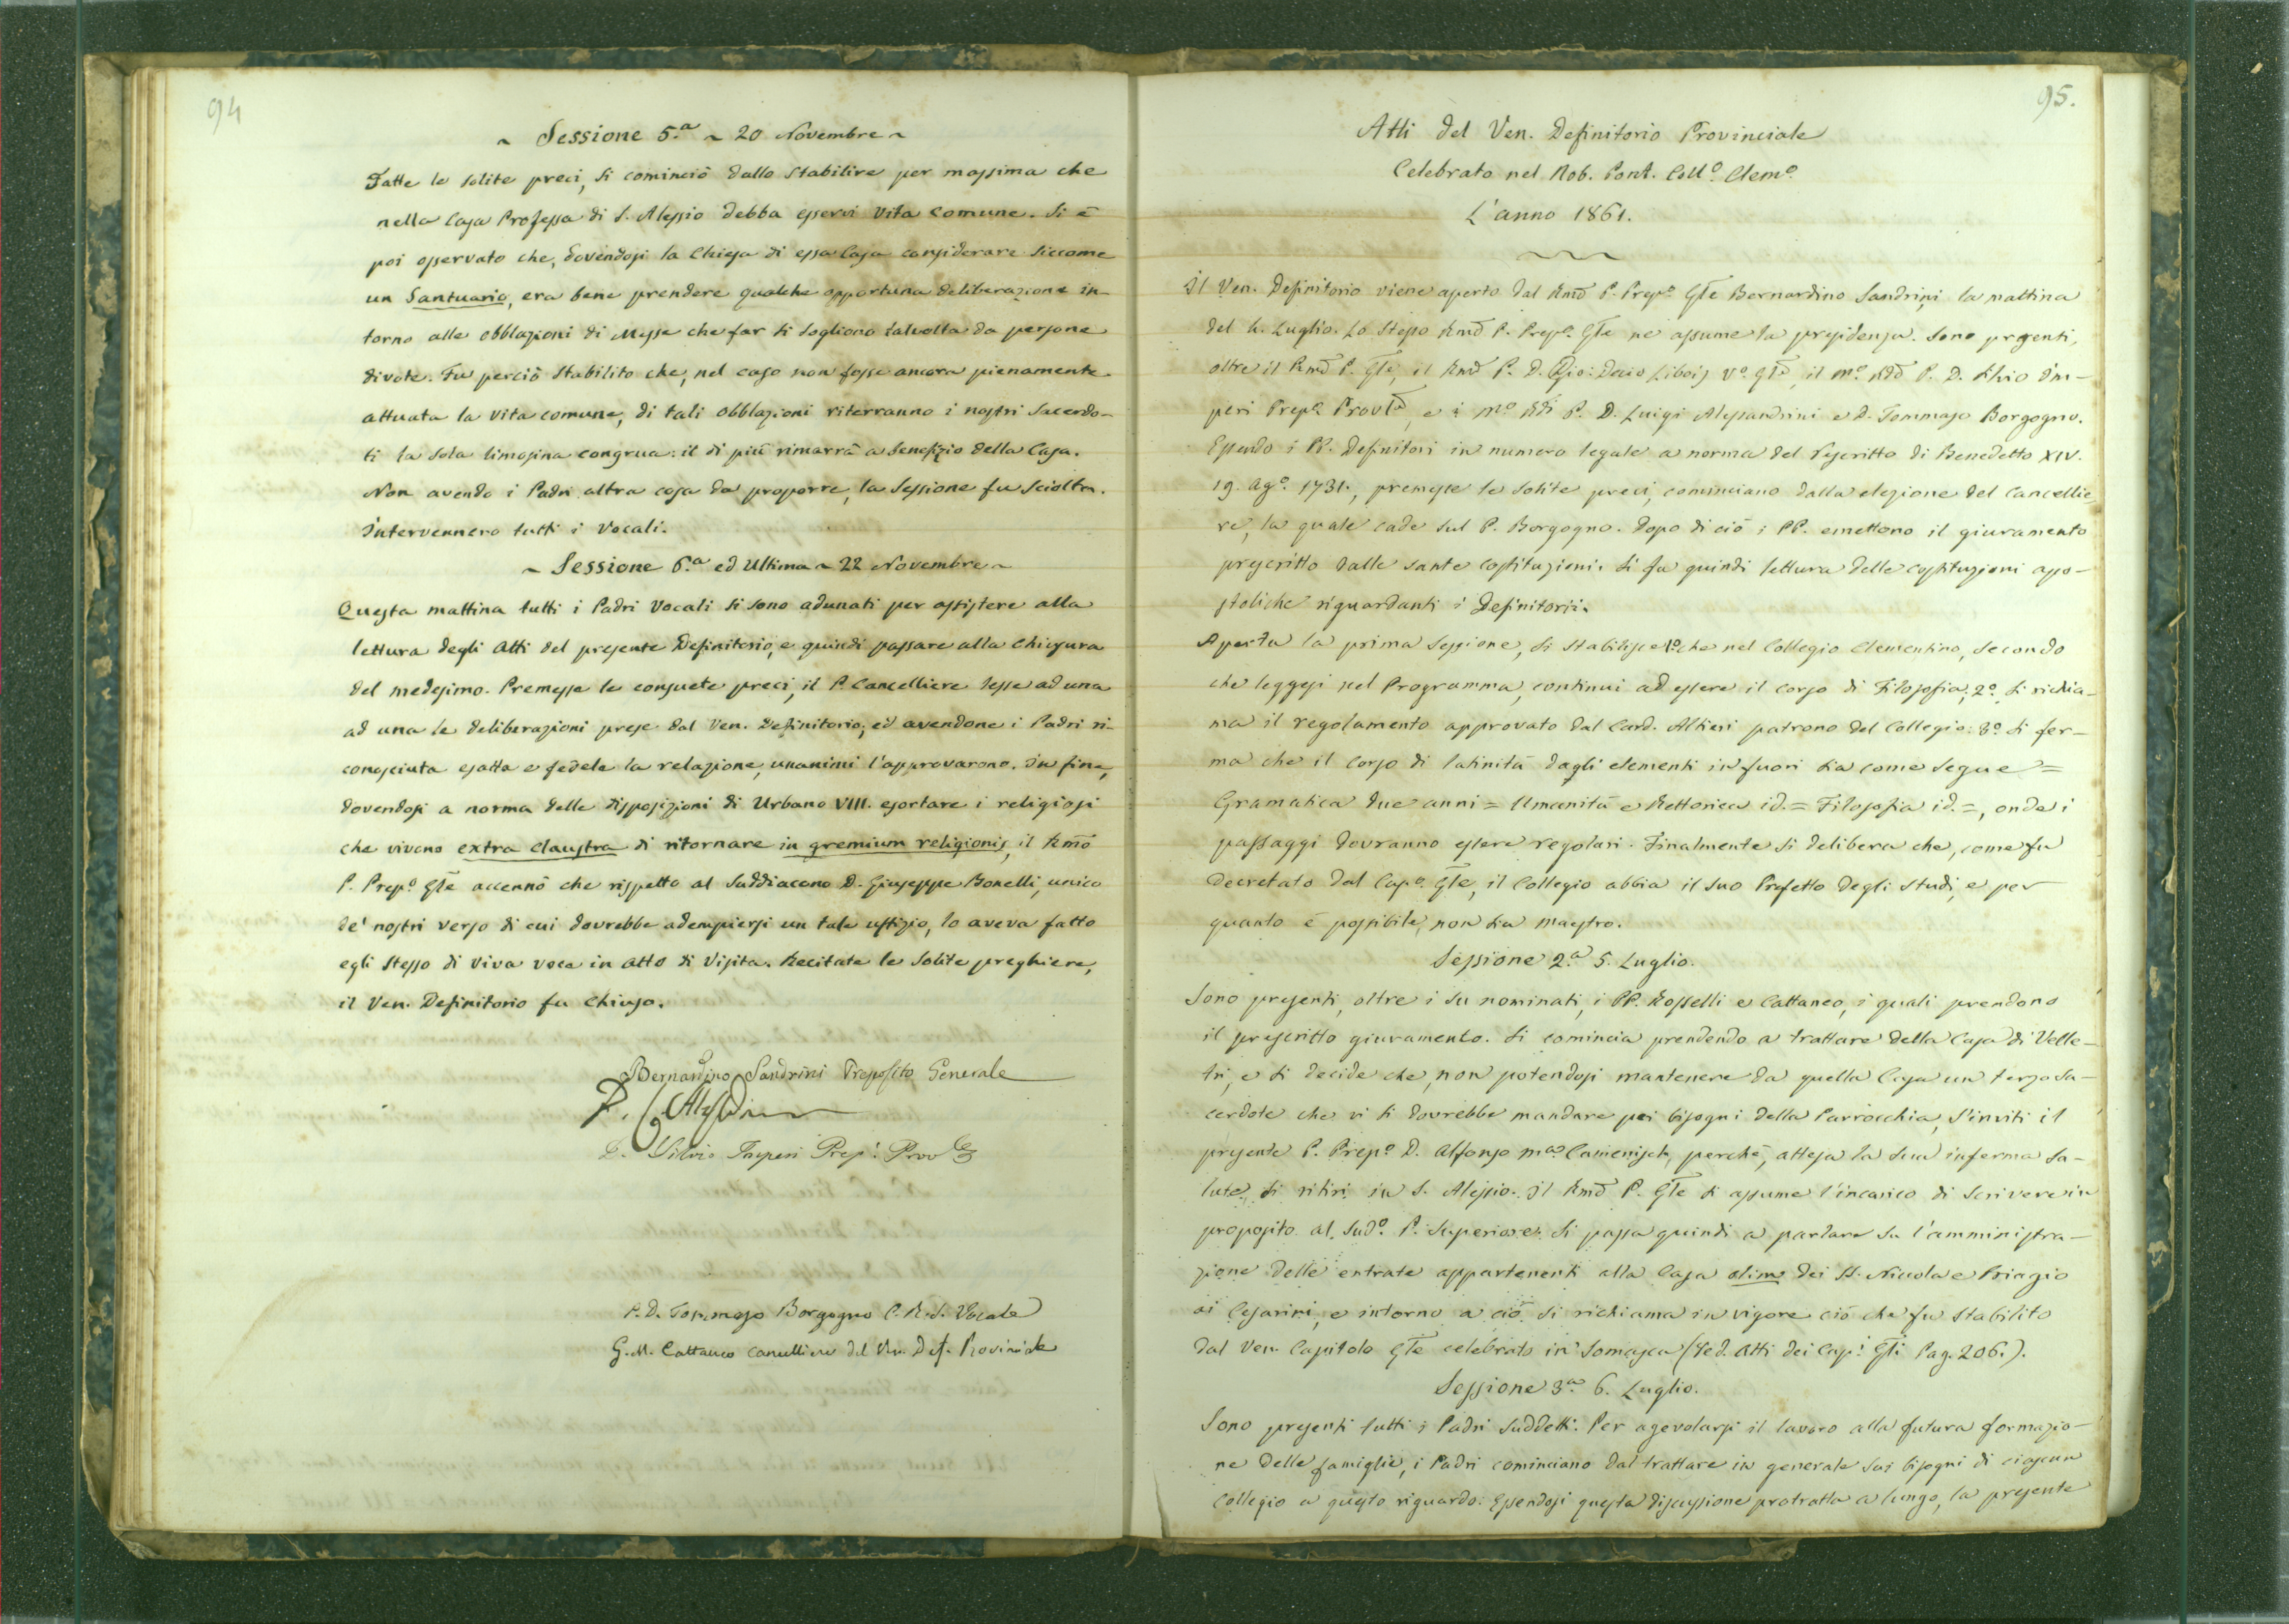 94
~ Sessione 5.a ~ 20 Novembre ~
Fatte le solite preci, si cominciò dallo stabilire per massima che
nella Casa Professa di S. Alessio debba esservi vita comune. Si è
poi osservato che, dovendosi la Chiesa di essa Casa considerare siccome
un Santuario, era bene prendere qualche opportuna deliberazione in-
torno alle obblazioni di Messe che far si sogliono talvolta da persone
divote. Fu perciò stabilito che, nel caso non fosse ancora pienamente
attuata la vita comune, di tali obblazioni riterranno i nostri Sacerdo-
ti la sola limosina congrua: il di più rimarrà a benefizio della Casa.
Non avendo i Padri altra cosa da proporre, la Sessione fu sciolta.
Intervennero tutti i Vocali.
~ Sessione 6.a ed Ultima ~ 22 Novembre ~
Questa mattina tutti i Padri Vocali si sono adunati per assistere alla
lettura degli Atti del presente Definitorio, e quindi passare alla chiusura
del medesimo. Premesse le consuete preci, il P. Cancelliere lesse ad una
ad una le deliberazioni prese dal Ven. Definitorio; ed avendone i Padri ri-
conosciuta esatta e fedele la relazione, unanimi l'approvarono. In fine,
dovendosi a norma delle disposizioni di Urbano VIII. esortare i religiosi
che vivono extra claustra di ritornare in gremium religionis, il Rmo
P. Prepo Gle accennò che rispetto al Suddiacono D. Giuseppe Bonelli, unico
de' nostri verso di cui dovrebbe adempiersi un tale uffizio, lo aveva fatto
egli stesso di viva voce in atto di Visita. Recitate le solite preghiere,
il Ven. Definitorio fu chiuso.
Bernardino Sandrini Preposito Generale
D. Silvio Imperi Prep: Provle
P. D. Tommaso Borgogno C. R. S. Vocale
G. M. Cattaneo Cancelliere del Ven. Def. Provinciale
95.
Atti del Ven. Definitorio Provinciale
Celebrato nel Nob. Pont. Collo. Clemo.
L'anno 1861.
Il Ven. Definitorio viene aperto dal Rmo P. Prepo Gle Bernardino Sandrini, la mattina
del 4. Luglio. Lo stesso Rmo P. Prepo Gle ne assume la presidenza. Sono presenti,
oltre il Rmo P. Gle, il Rmo P. D. Gio: Decio Libois Vo. Gle, il Mo. Rdo P. D. Silvio Im-
peri Prepo Provle, e i Mo Rdi P. D. Luigi Alessandrini e D. Tommaso Borgogno.
Essendo i PP. Definitori in numero legale a norma del Rescritto di Benedetto XIV.
19. Ago. 1731., premesse le solite preci, cominciano dalla elezione del Cancellie
re, la quale cade sul P. Borgogno. Dopo di ciò i PP. emettono il giuramento
prescritto dalle sante costituzioni. Si fa quindi lettura delle costituzioni apo-
stoliche riguardanti i Definitorii.
Aperta la prima Sessione, si stabilisce 1o che nel Collegio Clementino, secondo
che leggesi nel Programma, continui ad essere il corso di Filosofia; 2o. si richia-
ma il regolamento approvato dal Card. Altieri patrono del Collegio: 3o. si fer-
ma che il corso di latinità dagli elementi in fuori sia come segue =
Gramatica due anni = Umanità e Rettorica id. = Filosofia id. =, onde i
passaggi dovranno essere regolari. Finalmente si delibera che, come fu
decretato dal Capo. Gle, il Collegio abbia il suo Prefetto degli studi, e per
quanto è possibile, non sia maestro.
Sessione 2.a 5. Luglio.
Sono presenti, oltre i su nominati, i PP. Rosselli e Cattaneo, i quali prendono
il prescritto giuramento. Si comincia prendendo a trattare della Casa di Velle-
tri, e si decide che, non potendosi mantenere da quella Casa un terzo Sa-
cerdote che vi si dovrebbe mandare pei bisogni della Parrocchia, s'inviti il
presente P. Prepo. D. Alfonso Ma Camenisch, perchè, attesa la sua inferma sa-
lute, si ritiri in S. Alessio. Il Rmo P. Gle si assume l'incarico di scrivere in
proposito al sudo. P. Superiore. Si passa quindi a parlare su l'amministra-
zione delle entrate appartenenti alla Casa olim dei SS. Nicola e Biagio
ai Cesarini, e intorno a ciò si richiama in vigore ciò che fu stabilito
dal Ven. Capitolo Gle celebrato in Somasca (Ved. Atti dei Cap: Gli Pag. 206.).
Sessione 3a. 6. Luglio.
Sono presenti tutti i Padri suddetti. Per agevolarsi il lavoro alla futura formazio-
ne delle famiglie, i Padri cominciano dal trattare in generale sui bisogni di ciascun
Collegio a questo riguardo. Essendosi questa discussione protratta a lungo, la presente